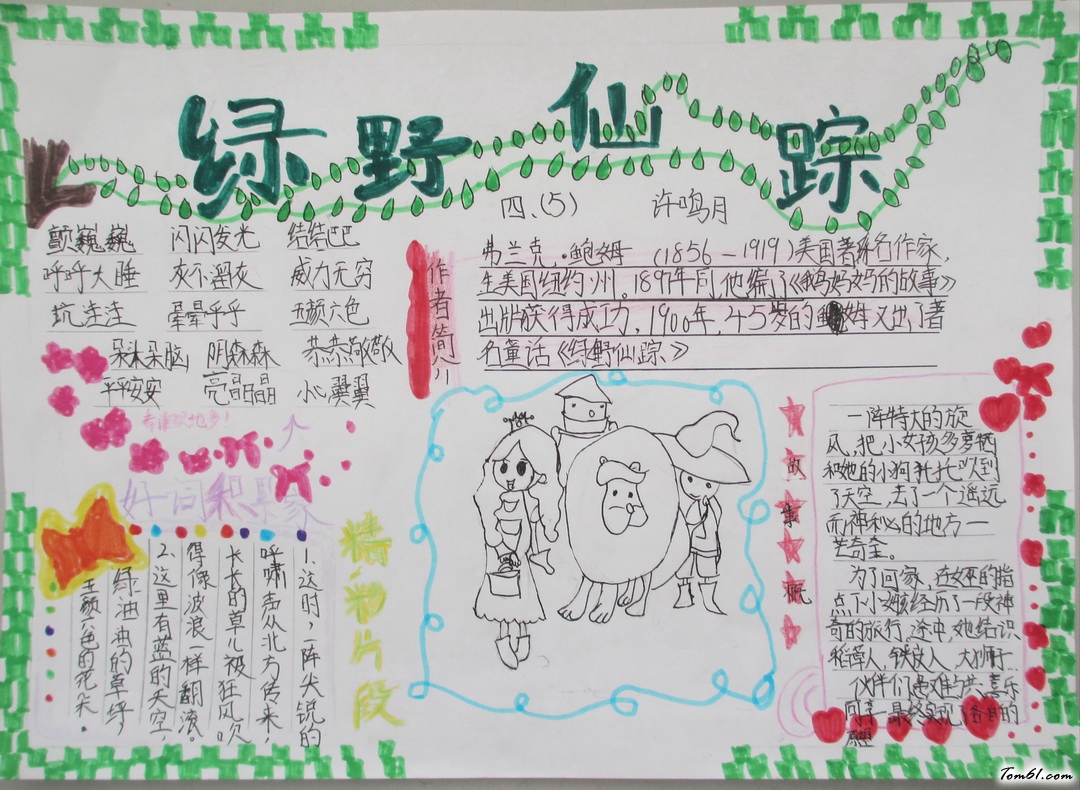 绿野仙踪
四、(5) 许鸣月
颤巍巍 闪闪发光 结结巴巴
呼呼大睡 灰不溜灰 威力无穷
坑洼洼 晕晕乎乎 五颜六色
呆头呆脑 阴森森 恭恭敬敬
平平安安 亮晶晶 小心翼翼
好词积累家
作者简介
弗兰克·鲍姆 (1856—1919)美国著名作家,
生美国纽约州。1897年间,他编了《鹅妈妈的故事》
出版获得成功,1900年,45岁的姓又出了著
名童话《绿野仙踪》
故事概
一阵特大的旋
风,把小女孩多萝茜
和她的小狗托托吹到
了天空,去了一个遥远
而神秘的地方一
芒奇金。
为了回家,在女巫的指
点下小女孩经历了一段神
奇的旅行,途中,她结识
稻草人,铁皮人,大狮子...
伙伴们患难与共,喜乐
同享,最终实现了各自的
愿望
精彩片段
1、这时,一阵尖锐的
呼啸声从北方传来,
长长的草儿被狂风吹
得像波浪一样翻滚。
2、这里有蓝的天空,
绿油油的草坪,
五颜六色的花朵。
Tom61.com